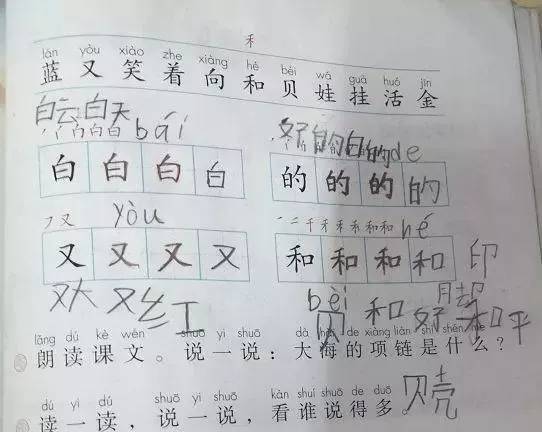 禾
lán yòu xiào zhe xiàng hé bèi wá guà huó jīn
蓝 又 笑 着 向 和 贝 娃 挂 活 金
白云 白天 bái
好的 白的 de
白 白 白 白
的 的 的 的
フ 又 yòu
一 二 千 禾 禾 禾 和 和 hé
又 又 又 又
和 和 和 和 印
又大 又红
bèi
贝 和好 和平
lǎng dú kè wén shuō yi shuō dà hǎi de xiàng liàn shì shén me
朗读课文。说一说：大海的项链是什么？
贝壳
dú yi dú shuō yi shuō kàn shuí shuō de duō
读一读，说一说，看谁说得多